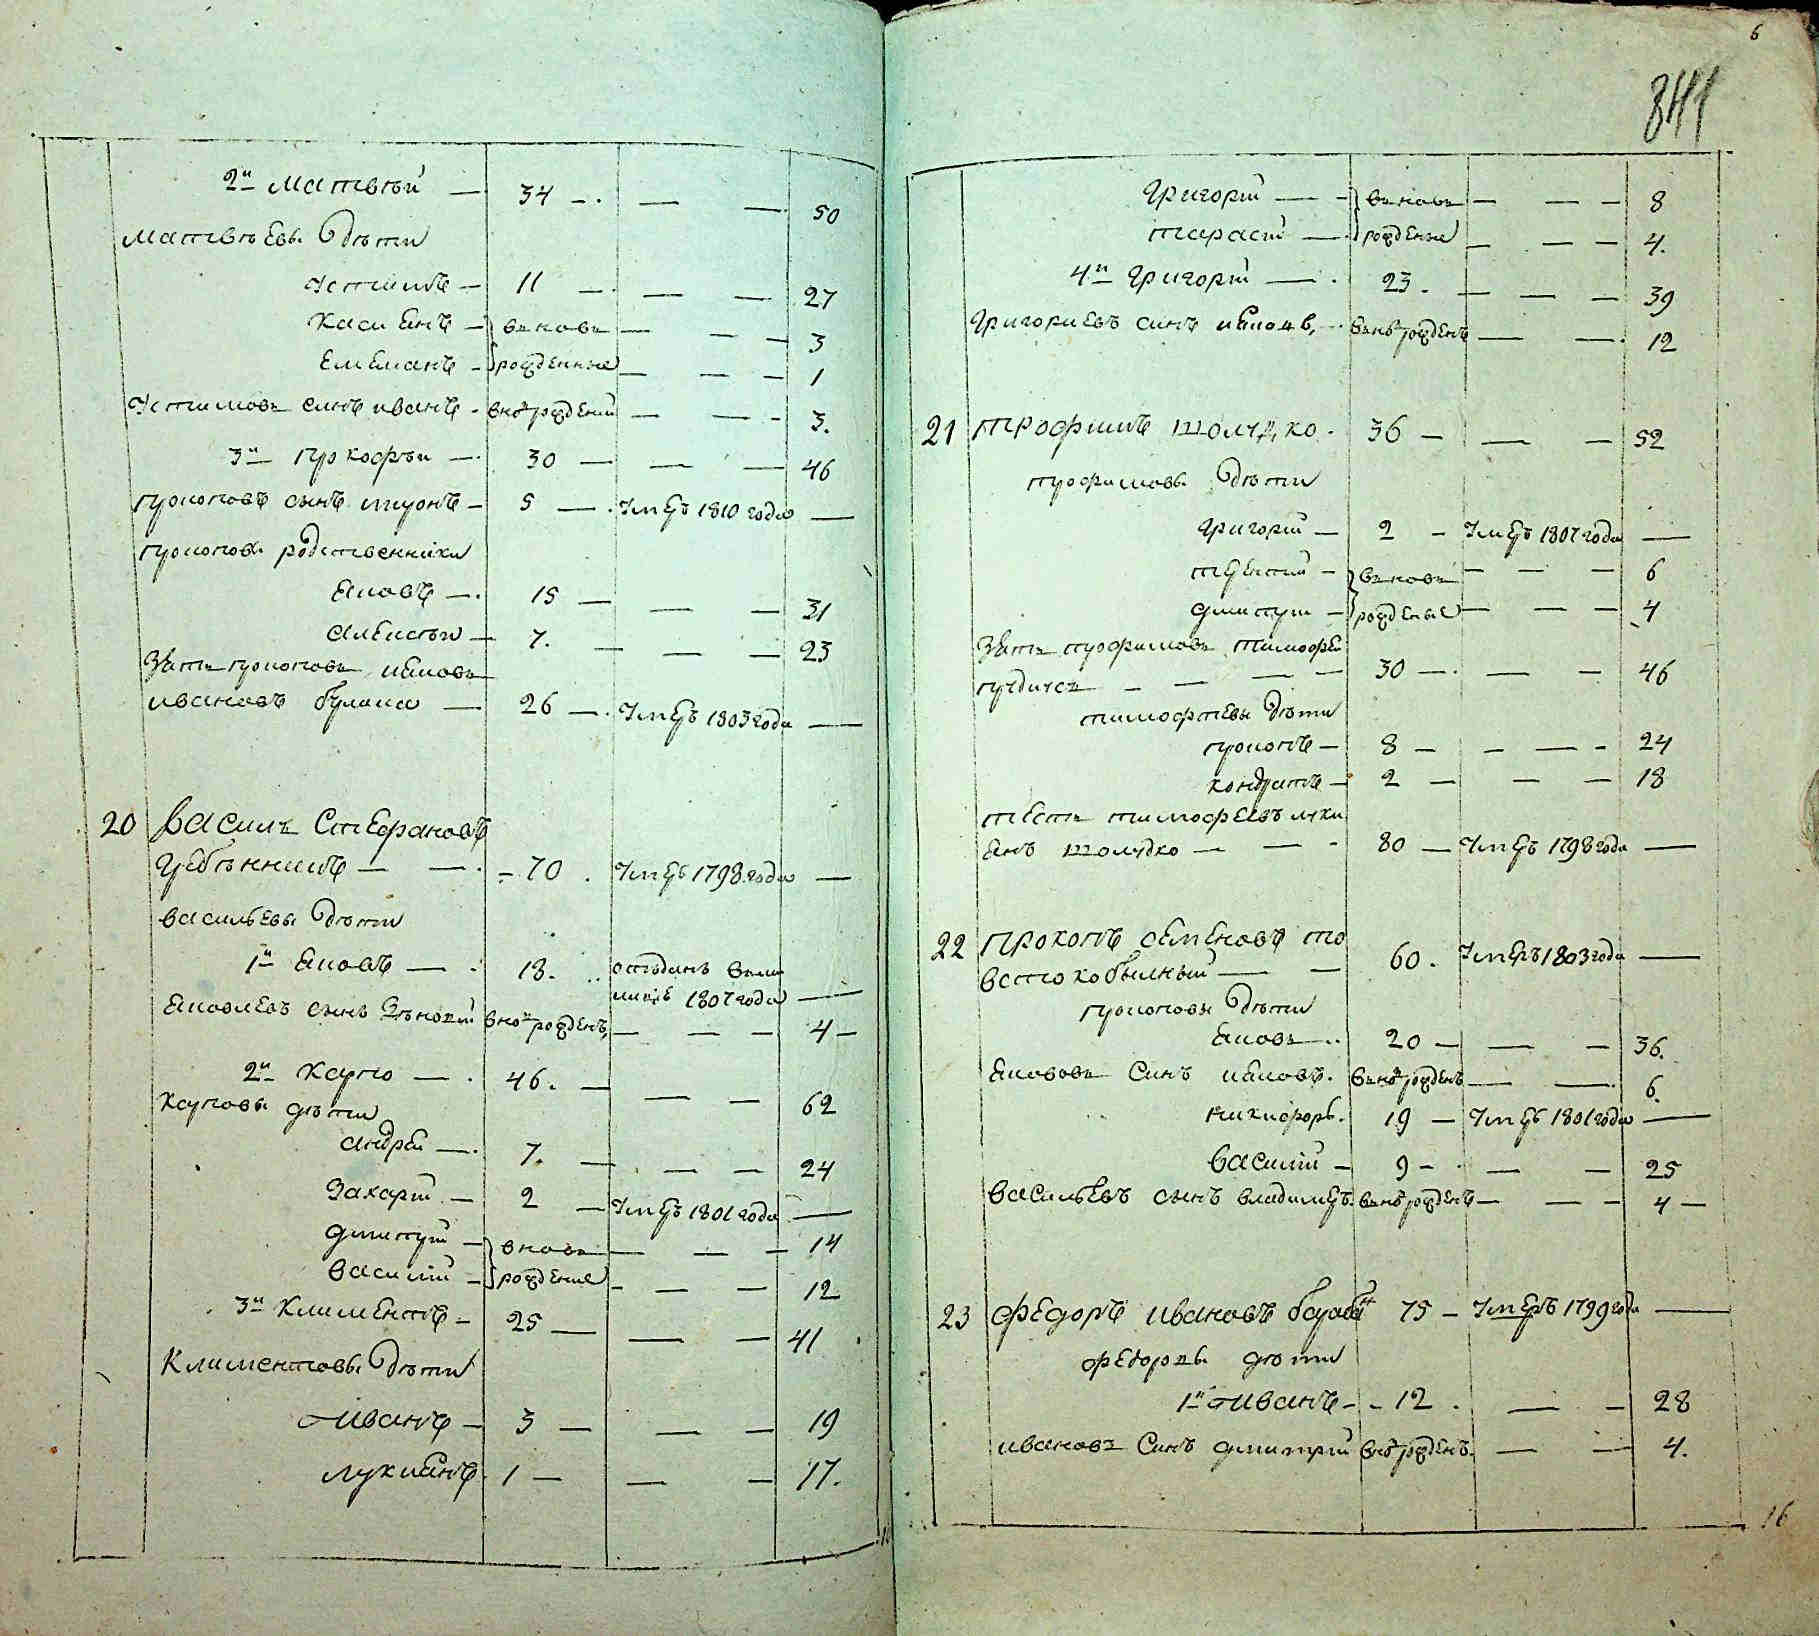 2й Матвѣй — 34 — — 50
Матвѣевы Дѣти
Устимъ — 11 — — 27
Касиянъ — вновь — — 3
Емельянъ — рожденные — — 1
Устимовъ синъ иванъ внорожденный — — 3.
3й Прокофъи — 30 — — 46
Прокоповъ сынъ — 5 — умеръ 1810 года —
Прокоповы родственники
Яковъ — 15 — — 31
Алексѣи — 7. — — 23
Зять прокоповъ Яковъ
ивановъ — 26 — умеръ 1803 года —
20 Василь Стефановъ
Гребѣнникъ — — 70 умеръ 1798 года —
васильевы Дѣти
1й Яковъ — 18. отъданъ въ
1807 года —
Яковлевъ сынъ внорожденъ — — 4 —
2й Карпо — 46. — — 62
Карповы дѣти
Андрей — 7. — — 24
Захарий — 2 — умеръ 1801 года —
Дмитрий — вновь — — 14
Василий — рожденные — — 12
3й Климентъ — 25 — — 41
Климентовы Дѣти
Иванъ — 3 — — 19
Лукиянъ 1 — — 17.
6
841
Григорий — вновь — — 8
Тарасий — рожденные — — 4.
4й Григорий — 23. — — 39
Григориевъ синъ вьнорожденъ — — 12
21 Трофимъ Шолудко. 36 — — 52
Трофимовы Дѣти
Григорий — 2 — умеръ 1807 года —
Терентий — вновь — — 6
Дмитрий — рожденые — — 4
Зять трофимовъ Тимофей
— — 30 — — 46
Тимофѣевы Дѣти
Прокопъ — 8 — — 24
Кондратъ — 2 — — 18
Тесть тимофеевъ луки
янъ шолудко — — 80 — умеръ 1798 года —
22 Прокопъ Семеновъ То
встокобылный — 60. умеръ 1803 года —
Прокоповы Дѣти
Яковъ 20 — — 36.
Якововъ Синъ Яковъ. вьнорожденъ — — 6.
Никифоръ. 19 — умеръ 1801 года —
Василий — 9 — — 25
Васильевъ сынъ владимеръ. вьнорожденъ — — 4 —
23 Федоръ Ивановъ 75 — умеръ 1799 года —
Федоровы дѣти
1й Иванъ — 12. — — 28
Ивановъ Синъ дмитрий внорожденъ. — — 4.
16